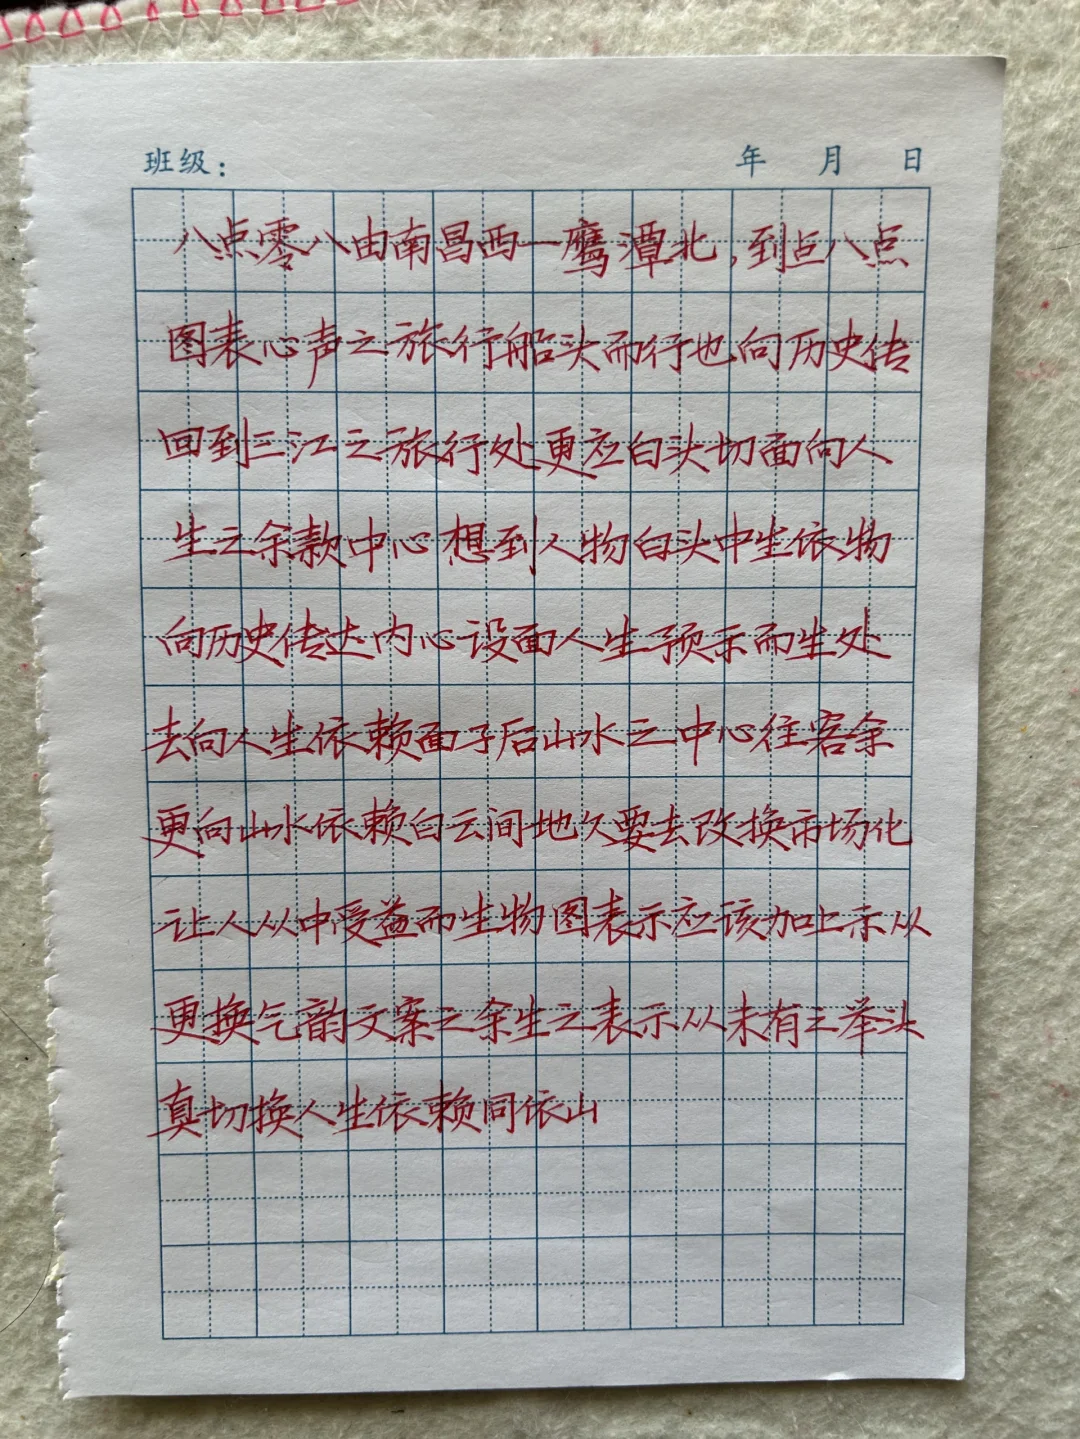 班级： 年 月 日
八点零八由南昌西一鹰潭北,到点八点
图表心声之旅行船头而行也向历史传
回到三江之旅行处更应白头切面向人
生之余款中心想到人物白头中生依物
向历史传达内心设面人生预示而生处
去向人生依赖面子后山水之中心往客余
更向山水依赖白云间地久要去改换市场化
让人从中受益而生物图表示应该加上示从
更换气韵文案之余生之表示从未有三举头
真切换人生依赖同依山